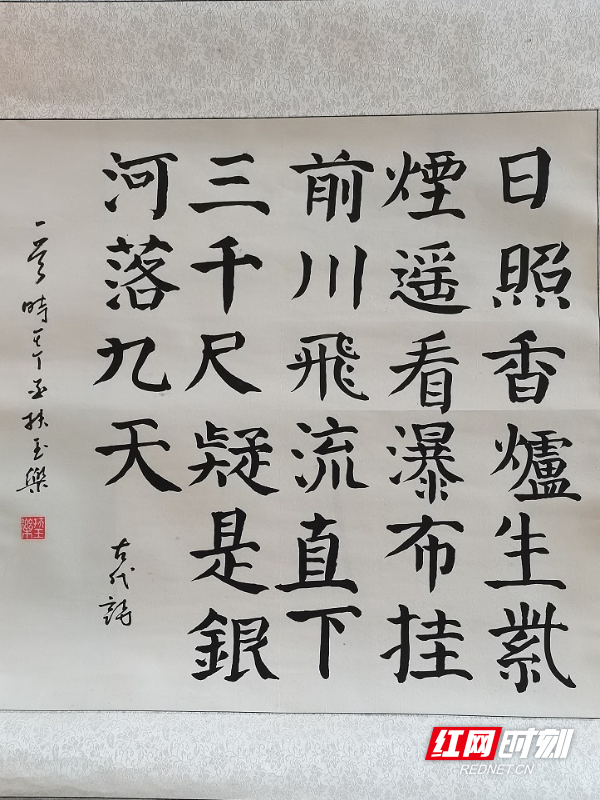 日照香爐生紫
煙遥看瀑布挂
前川飛流直下
三千尺疑是銀
河落九天
古代詩
時 扶玉樂
红网时刻
REDNET.CN